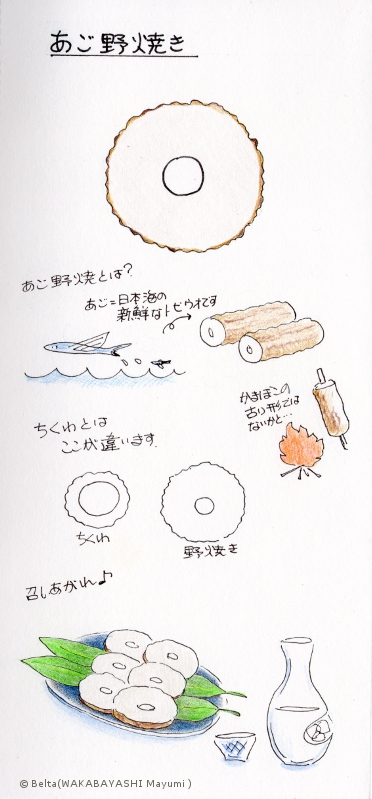 あご野焼き
あご野焼とは?
あご=日本海の
新鮮なトビウオです
かまぼこの
古い形では
ないかと…
ちくわとは
ここが違います.
ちくわ
野焼き
召しあがれ♪
© Belta(WAKABAYASHI Mayumi )